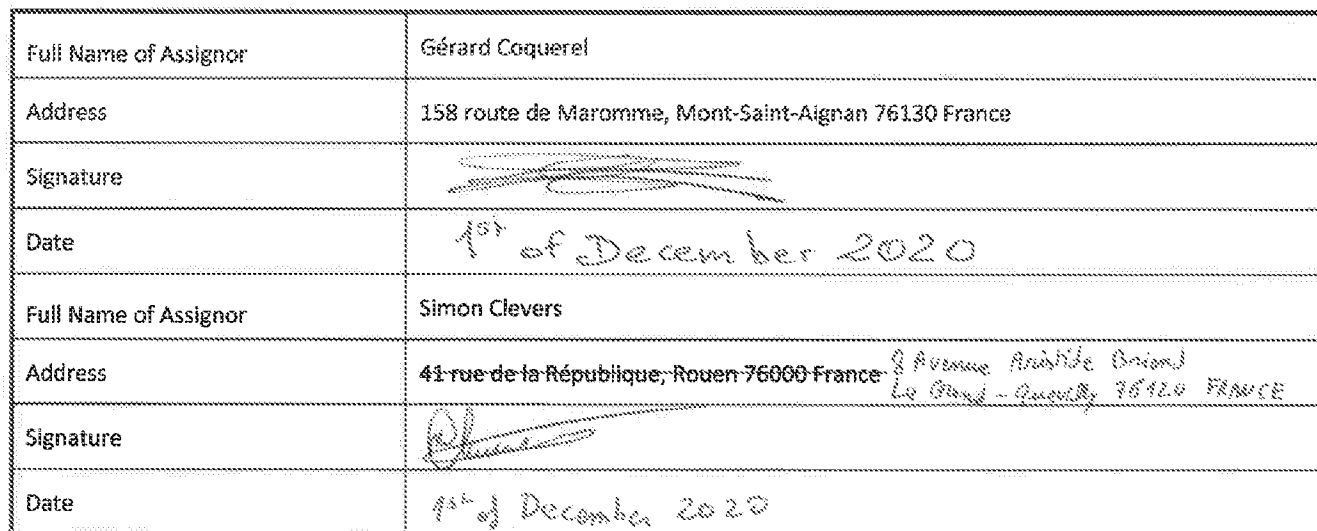 Full Name of Assignor Gérard Coquerel
Address 158 route de Maromme, Mont-Saint-Aignan 76130 France
Signature
Date 1st of December 2020
Full Name of Assignor Simon Clevers
Address 41 rue de la République, Rouen 76000 France Avenue Aristide Briand
Le Grand-Quevilly 76120 FRANCE
Signature
Date 1st of December 2020